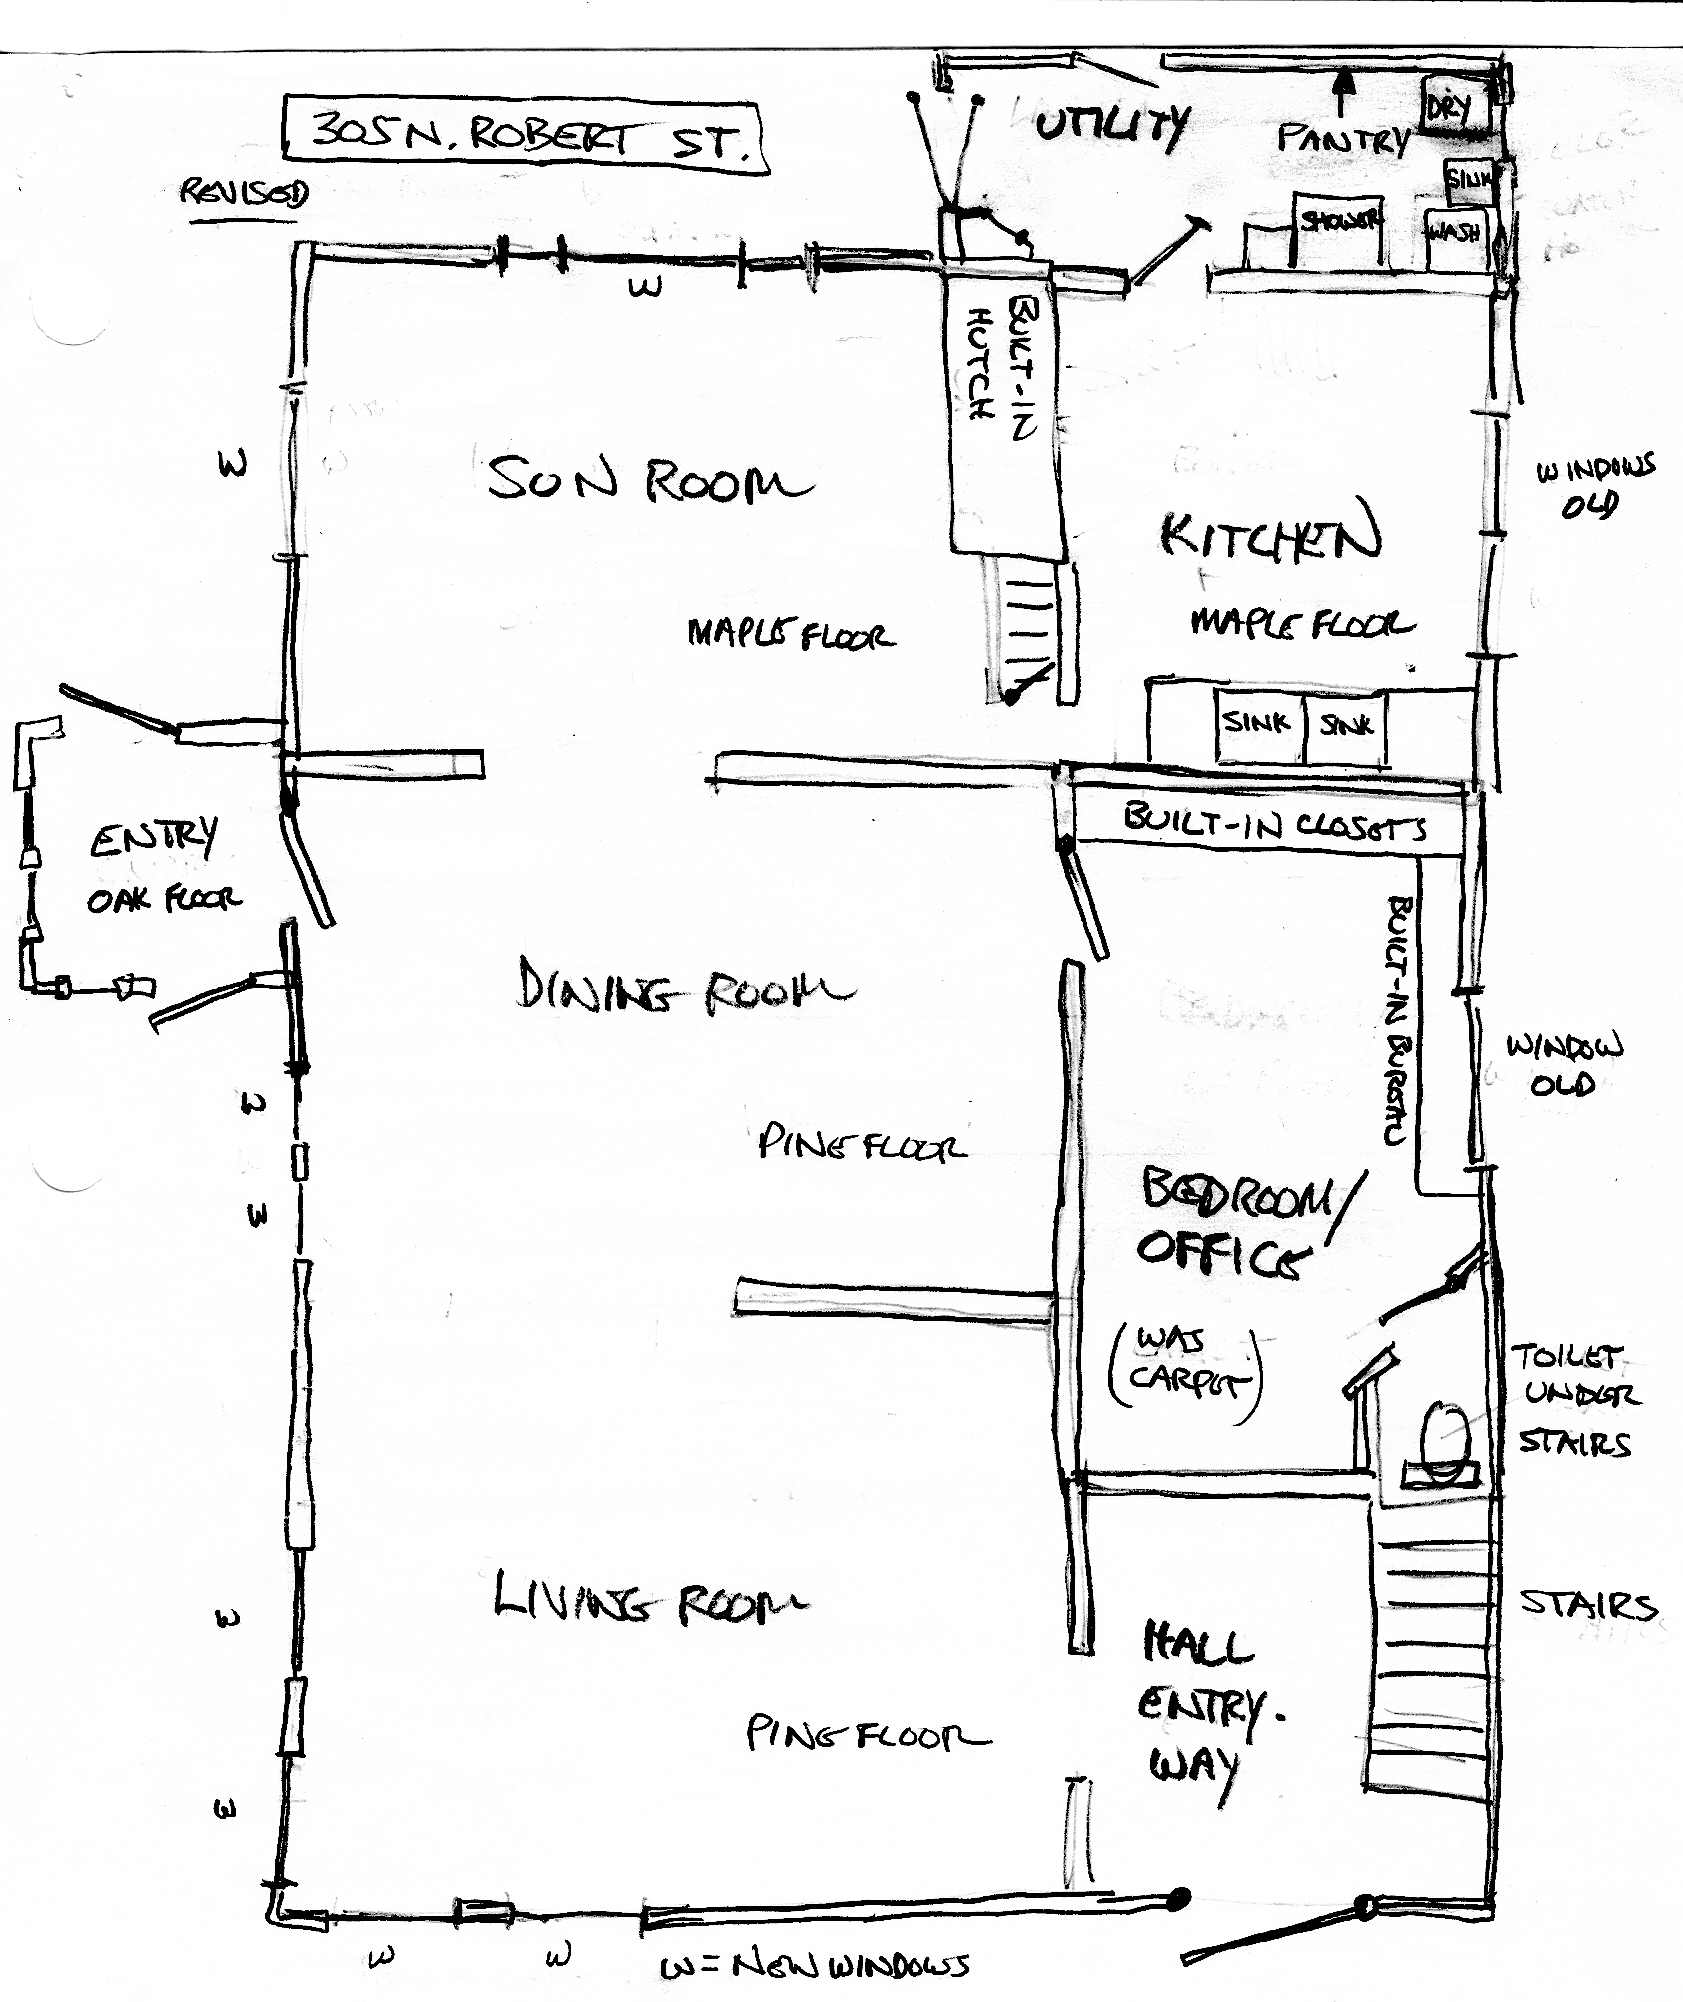 305 N. ROBERT ST.
REVISED
UTILITY
PANTRY
DRY
SINK
SHOWER
WASH
W
BUILT-IN
HUTCH
W
SUN ROOM
MAPLE FLOOR
KITCHEN
MAPLE FLOOR
WINDOWS
OLD
SINK
SINK
BUILT-IN CLOSETS
ENTRY
OAK FLOOR
DINING ROOM
PINE FLOOR
BUILT-IN BUREAU
WINDOW
OLD
W
W
BEDROOM/
OFFICE
(WAS
CARPET)
TOILET
UNDER
STAIRS
LIVING ROOM
PINE FLOOR
HALL
ENTRY-
WAY
STAIRS
W
W
W
W
W = NEW WINDOWS